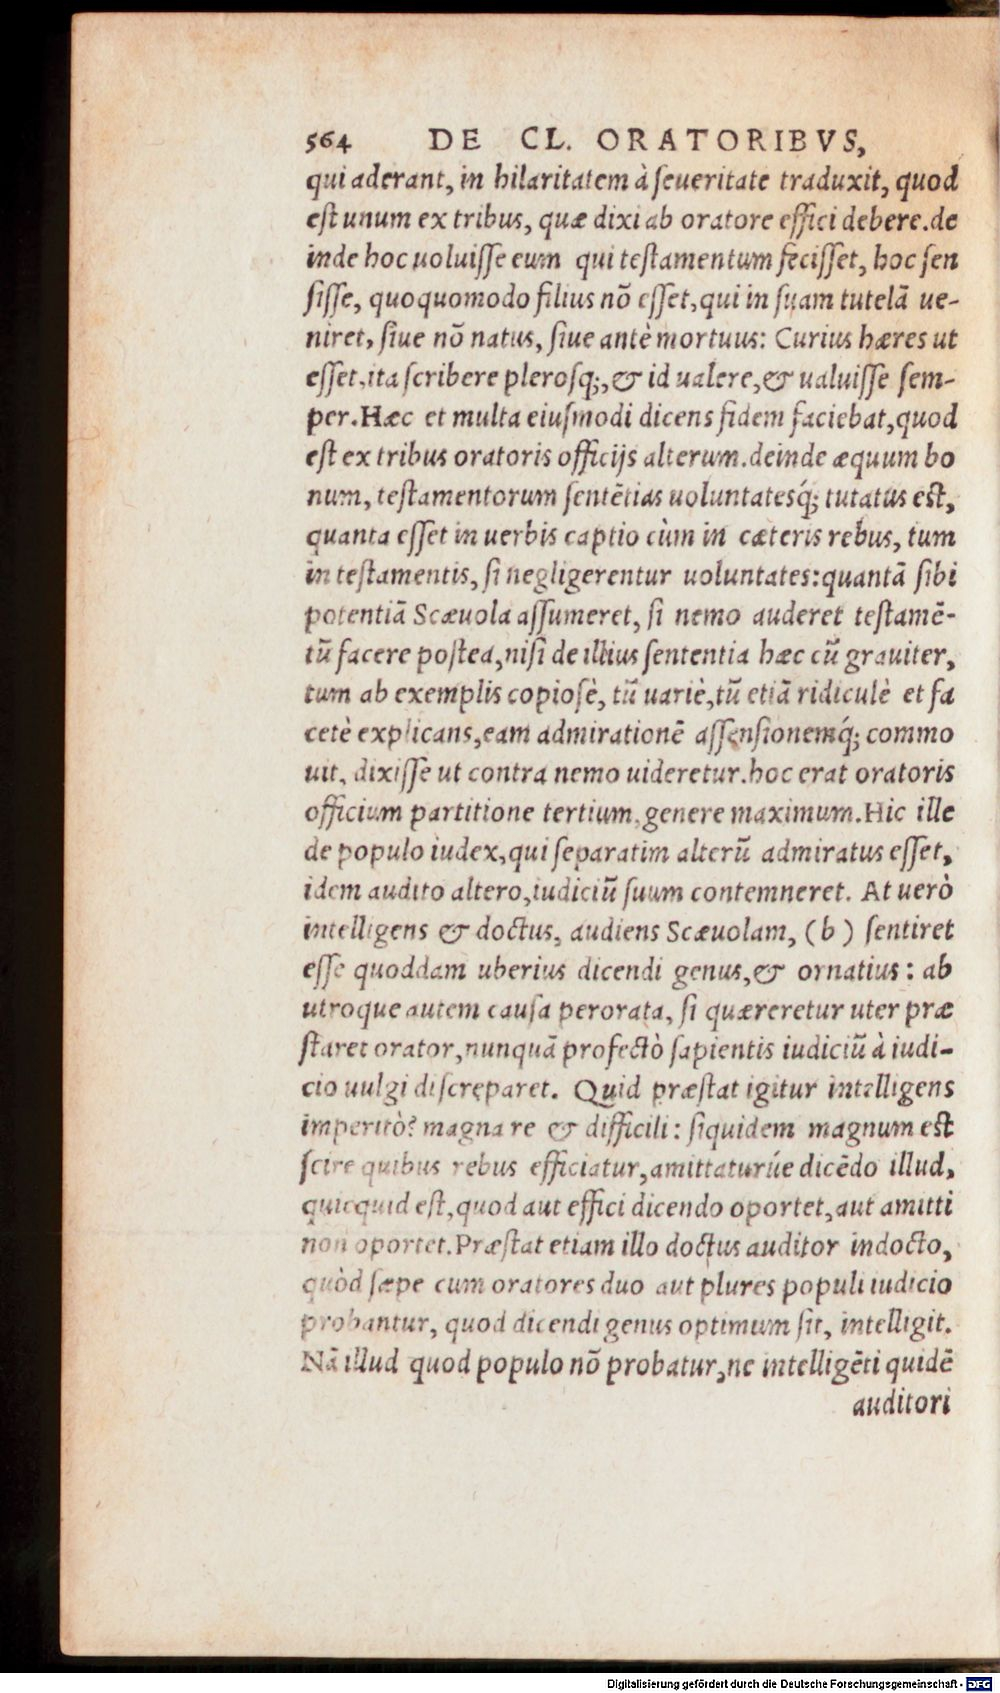 564 DE CL. ORATORIBVS,
qui aderant, in hilaritatem à ſeueritate traduxit, quod
eſt unum ex tribus, quæ dixi ab oratore effici debere. de
inde hoc uoluiſſe eum qui teſtamentum feciſſet, hoc ſen
ſiſſe, quoquomodo filius nō eſſet, qui in ſuam tutelā ue-
niret, ſiue nō natus, ſiue antè mortuus: Curius hæres ut
eſſet, ita ſcribere pleroſq;, & id ualere, & ualuiſſe ſem-
per. Hæc et multa eiuſmodi dicens fidem faciebat, quod
eſt ex tribus oratoris officijs alterum. deinde æquum bo
num, teſtamentorum ſentētias uoluntatesq́; tutatus eſt,
quanta eſſet in uerbis captio cùm in cæteris rebus, tum
in teſtamentis, ſi negligerentur uoluntates: quantā ſibi
potentiā Scæuola aſſumeret, ſi nemo auderet teſtamē-
tū facere poſtea, niſi de illius ſententia hæc cū grauiter,
tum ab exemplis copioſè, tū uariè, tū etiā ridiculè et fa
cetè explicans, eam admirationē aſſenſionemq́; commo
uit, dixiſſe ut contra nemo uideretur. hoc erat oratoris
officium partitione tertium, genere maximum. Hic ille
de populo iudex, qui ſeparatim alterū admiratus eſſet,
idem audito altero, iudiciū ſuum contemneret. At uerò
intelligens & doctus, audiens Scæuolam, ( b ) ſentiret
eſſe quoddam uberius dicendi genus, & ornatius: ab
utroque autem cauſa perorata, ſi quæreretur uter præ
ſtaret orator, nunquā profectò ſapientis iudiciū à iudi-
cio uulgi diſcreparet. Quid præſtat igitur intelligens
imperitò? magna re & difficili: ſiquidem magnum eſt
ſcire quibus rebus efficiatur, amittaturúe dicēdo illud,
quicquid eſt, quod aut effici dicendo oportet, aut amitti
non oportet. Præſtat etiam illo doctus auditor indocto,
quòd ſæpe cum oratores duo aut plures populi iudicio
probantur, quod dicendi genus optimum ſit, intelligit.
Nā illud quod populo nō probatur, ne intelligēti quidē
auditori
Digitalisierung gefördert durch die Deutsche Forschungsgemeinschaft - DFG